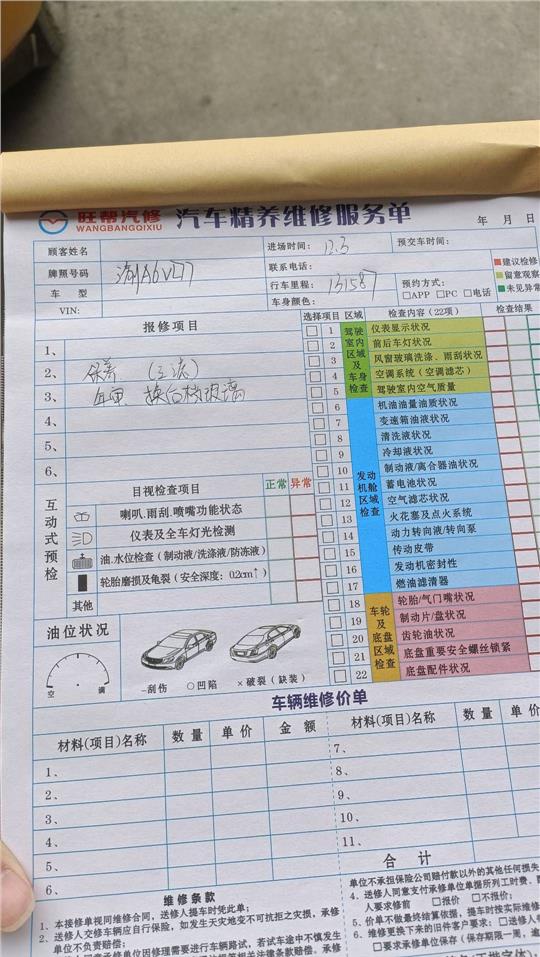 旺帮汽修
WANGBANGQIXIU
汽车精养维修服务单
年 月 日
顾客姓名
进场时间: 12.3
预交车时间:
牌照号码
联系电话:
车 型
行车里程: 131587
预约方式:
□APP □PC □电话
VIN:
车身颜色:
建议检修
留意观察
未见异常
报修项目
1、
2、保养 (三滤)
3、
4、
5、
6、
选择项目 区域 检查内容(22项) 检查结果
驾驶室内区域及车身检查
1 仪表显示状况
2 前后车灯状况
3 风窗玻璃洗涤、雨刮状况
4 空调系统(空调滤芯)
5 驾驶室内空气质量
发动机舱区域检查
6 机油油量油质状况
7 变速箱油液状况
8 清洗液状况
9 冷却液状况
10 制动液/离合器油状况
11 蓄电池状况
12 空气滤芯状况
13 火花塞及点火系统
14 动力转向液/转向泵
15 传动皮带
16 发动机密封性
17 燃油滤清器
车轮及底盘区域检查
18 轮胎/气门嘴状况
19 制动片/盘状况
20 齿轮油状况
21 底盘重要安全螺丝锁紧
22 底盘配件状况
互动式预检
目视检查项目 正常 异常
喇叭.雨刮.喷嘴功能状态
仪表及全车灯光检测
油.水位检查(制动液/洗涤液/防冻液)
轮胎磨损及龟裂(安全深度: 0.2cm↑)
其他
油位状况
空 满
-刮伤 ○凹陷 ×破裂(缺装)
车辆维修价单
材料(项目)名称 数量 单价 金额
材料(项目)名称 数量 单价
1、
2、
3、
4、
5、
6、
7、
8、
9、
10、
11、
合计
维修条款
1、本接修单视同维修合同,送修人提车时凭此单;
2、送修人交修车辆应自行保险,如发生天灾地变不可抗拒之灾损,承修
单位不负责赔偿;
单位不承担保险公司赔付款以外的其他任何损失
4、送修人同意支付承修单位单据所列工时费、
人要求修前 □报价 □不报价;
5、价单不做最终结算依据,提车时按实际维修
6、维修更换下来的旧件客户要求: □送修人
□要求承修单位保存(保存期限一周,逾